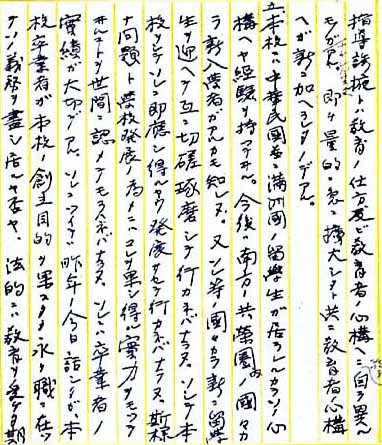 指導誘掖トハ教育ノ仕方及ビ教育者ノ心構ヘニ自ラ異ル
モノガアル 即チ量的ニ擴大シタト共ニ教育者心構
ヘガ新ニ加ヘラレタノデアル。
五、本校ハ中華民國並ニ満洲國ノ留學生ガ居ラレルカラソノ心
構ヘヤ経験ヲ持ツテヰル。今後ハ南方ノ共榮圏内ノ國々カ
ラ新入學者ガアルカモ知レヌ。又ソレ等國々カラ新ニ留學
生ヲ迎ヘテ互ニ切磋琢磨シテ行カネバナラヌ。ソレデ本
校トシテソレニ即應シ得ルヤウ發展サセテ行カネバナラヌ。斯様
ナ問題ト學校發展ノ為メニハコレヲ果シ得ル實力ヲモツテ
ヰルト世間ニ認メテモラハネバナラヌ。ソレニハ卒業者ノ
實績ガ大切デアル。ソレニツイテハ昨年ノ今日話シタガ、本
校卒業者ガ本校ノ創立目的ヲ果スタメ永ク職ニ在ツ
テソノ義務ヲ盡シ居ルヤ否ヤ、法的ニハ教育ヲ受ケタ期